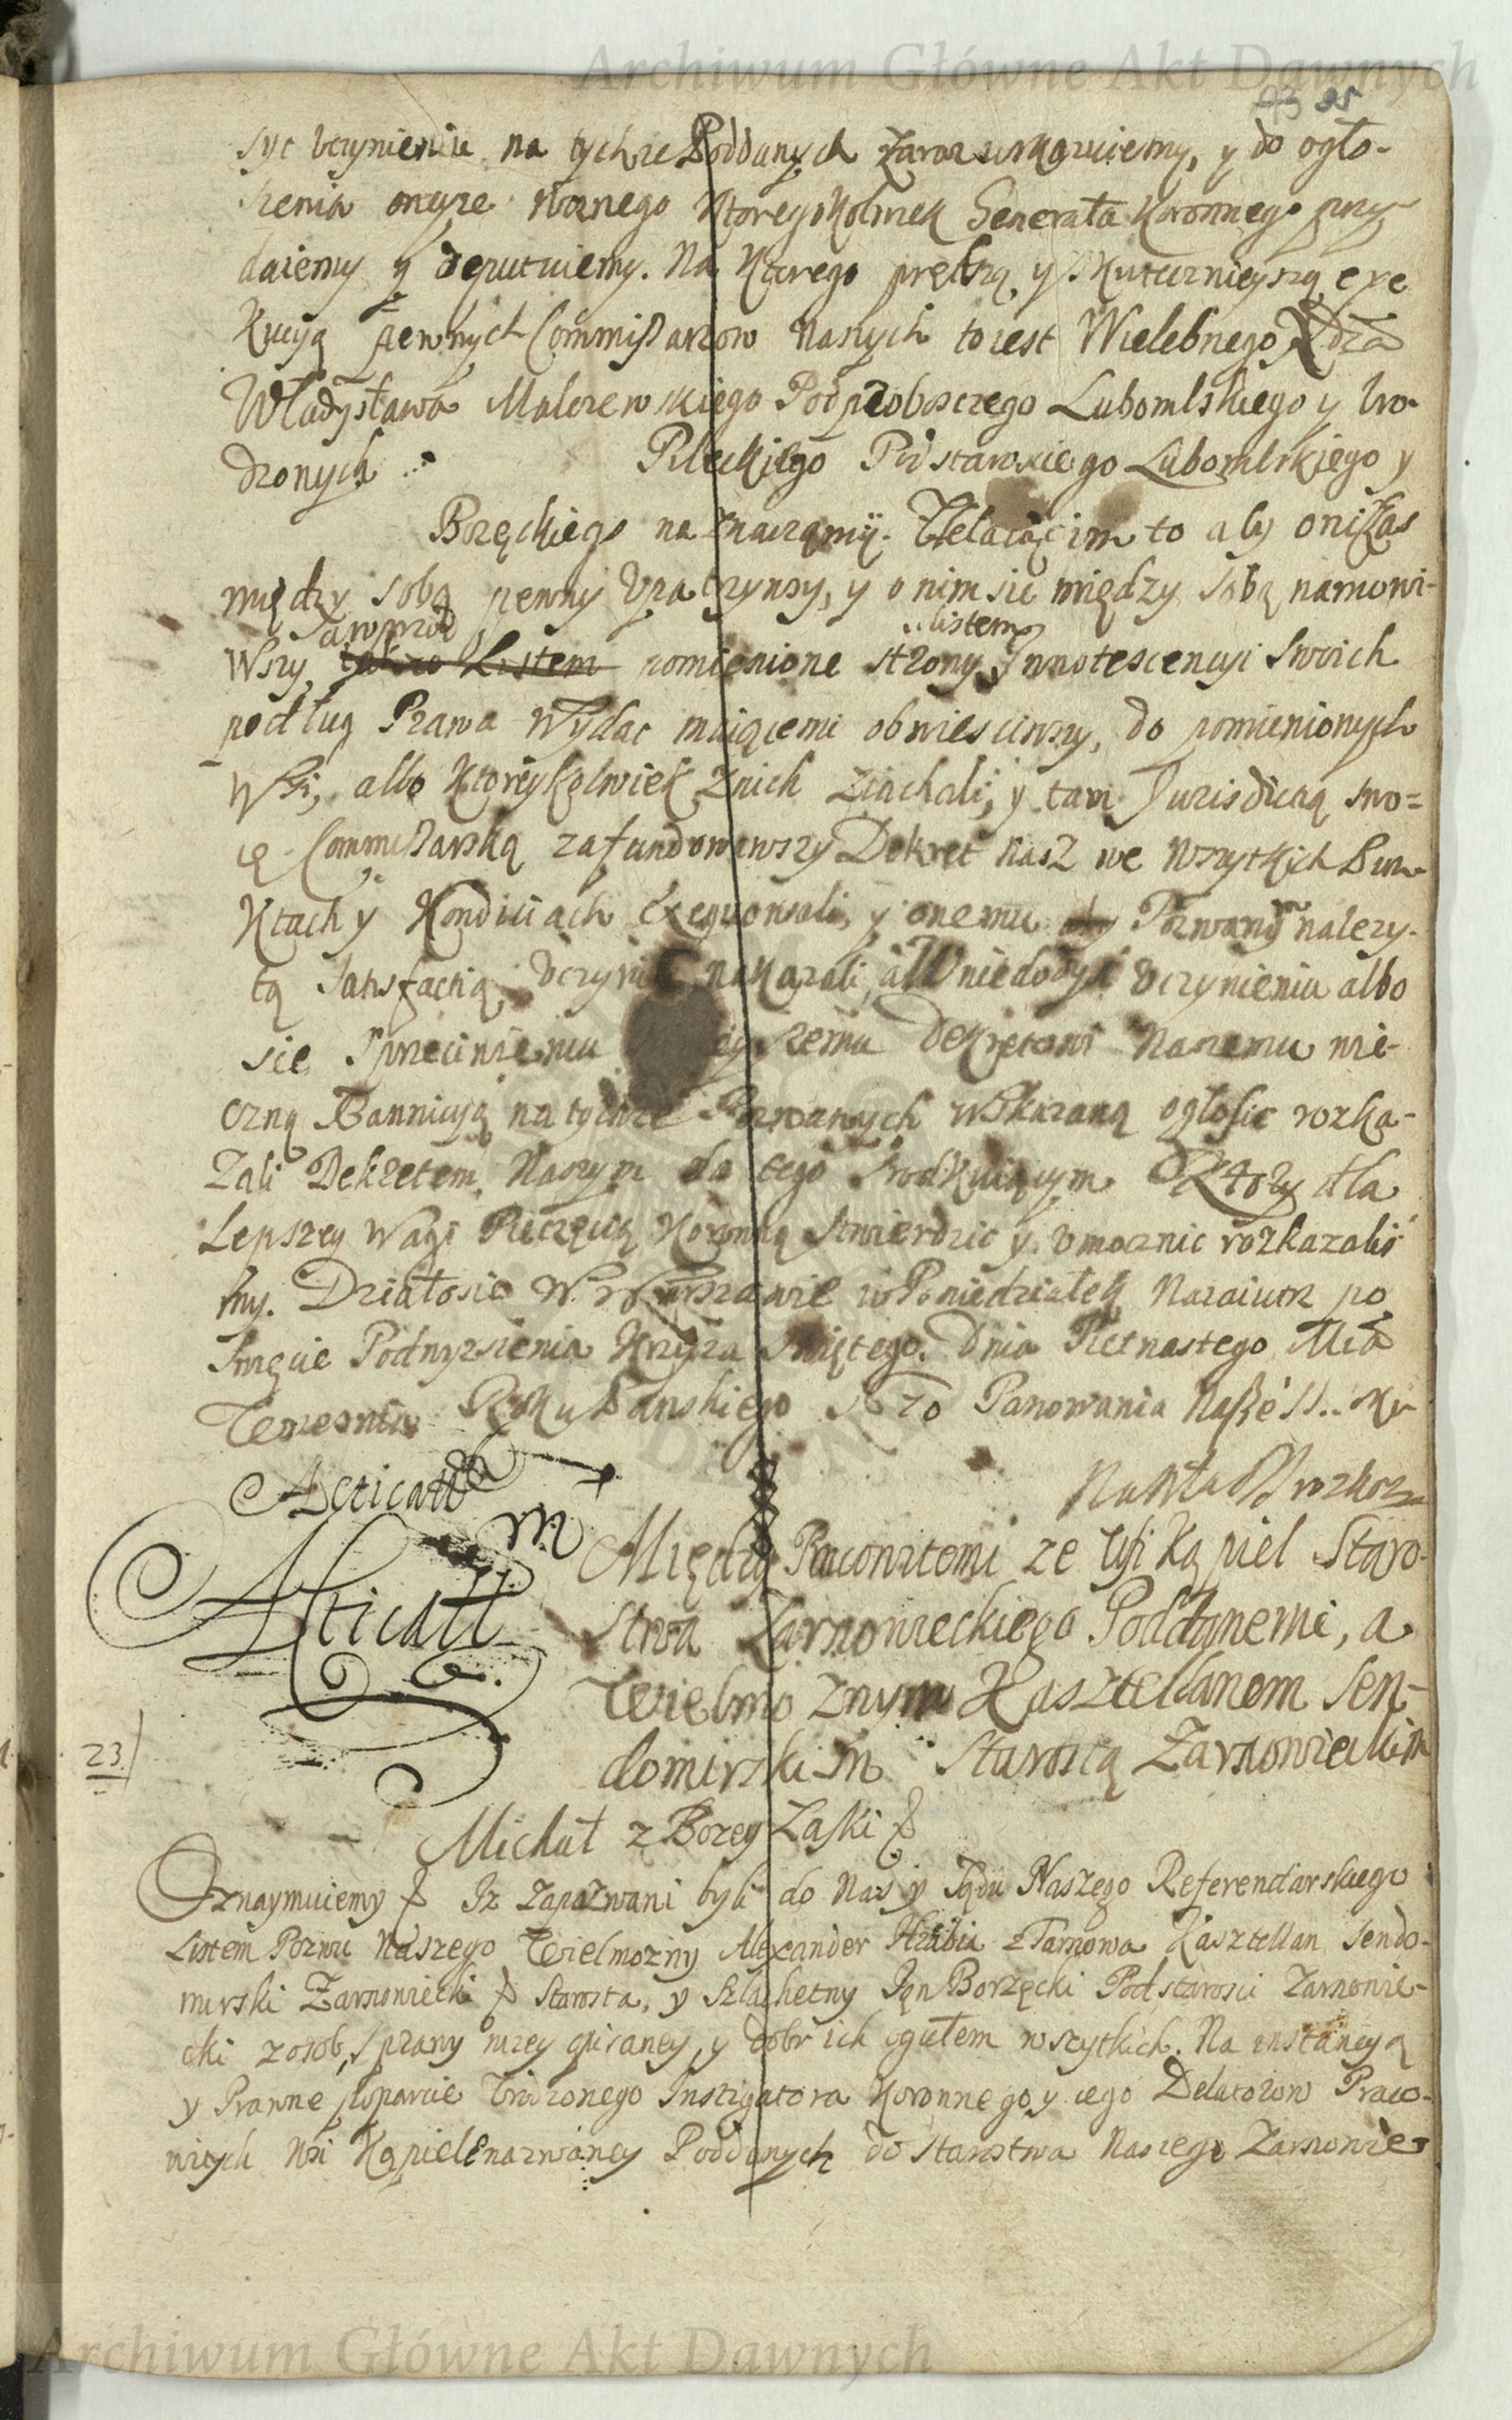 Archiwum Główne Akt Dawnych
95
syc vczynieniu na tychze Poddanych zaraz wskazuiemy, y do ogło-
szenia oneyze Woznego ktoregokolwiek Generała Koronnego przy-
daiemy y deputuiemy. Na ktorego prętszą y skutecznieyszą exe
kucyą pewnych Commissarzow naszych to iest Wielebnego Xdza
Władysława Malczewskiego Podproboszczego Lubomlskiego y Vro-
dzonych Pileckiego Podstarosciego Lubomlskiego y
Borzęckiego naznaczamy. Zlecaiąc im to aby oni czas
między sobą pewny Vpatrzywszy, y o nim sie między sobą namowi-
wszy, tak ze Listem pomienione strony Innotescencyi Swoich
nawprzod listem
podług Prawa wydac maiącemi obwiesciwszy, do pomienionych
Wsi, albo ktoreykolwiek z nich ziachali, y tam Jurisdicią swo=
ię Commissarską zafundowawszy Dekret nasz we wszytkich Pun-
ktach y Kondiciach Exequowali, y onemu aby Pozwanym nalezy-
tą Satisfactią Vczynic nakazali, a W niedosyc Vczynieniu albo
sie Sprzeciwieniu szemu Dekretowi Naszemu wie-
czną Bannicyą na tychze Pozwanych wskazaną ogłosic rozka-
zali Dekretem Naszym do tego srodkuiącym Ktory dla
Lepszey Wagi Pieczęcią Koronną Stwierdzic y vmocnic rozkazalis
my. Działosie W Warszawie w Poniedziałek Nazaiutrz po
Swięcie Podwyzszenia Krzyza Swiętego. Dnia Pietnastego Mca
Wrzesnia Roku Panskiego Panowania Nasze
Acticatū
Acticatū
Między Pracowitemi ze Wsi Kąpiel Staro-
stwa Zarnowieckiego Poddanemi, a
Wielmoznym Kasztellanem Sen-
domirskim Starostą Zarnowieckim
23.
Michał z Bozey Laski
Oznaymuiemy Iz Zapozwani byli do Nas y Sądu Naszego Referendarskiego
Listem Pozwu Naszego Wielmozny Alexander Hrabia z Tarnowa Kasztellan Sendo-
mirski Zarnowiecki Starosta, y Szlachetny Jan Borzęcki Podstarosci Zarnowie-
cki z osob, sprawy nizey opisaney, y dobr ich ogułem wszytkich. Na instancyą
y Prawne poparcie Vrodzonego Instigatora Koronnego y iego Delatorow Praco-
witych Wsi Kąpiele nazwaney Poddanych do Starostwa Naszego Zarnowie-
Archiwum Główne Akt Dawnych